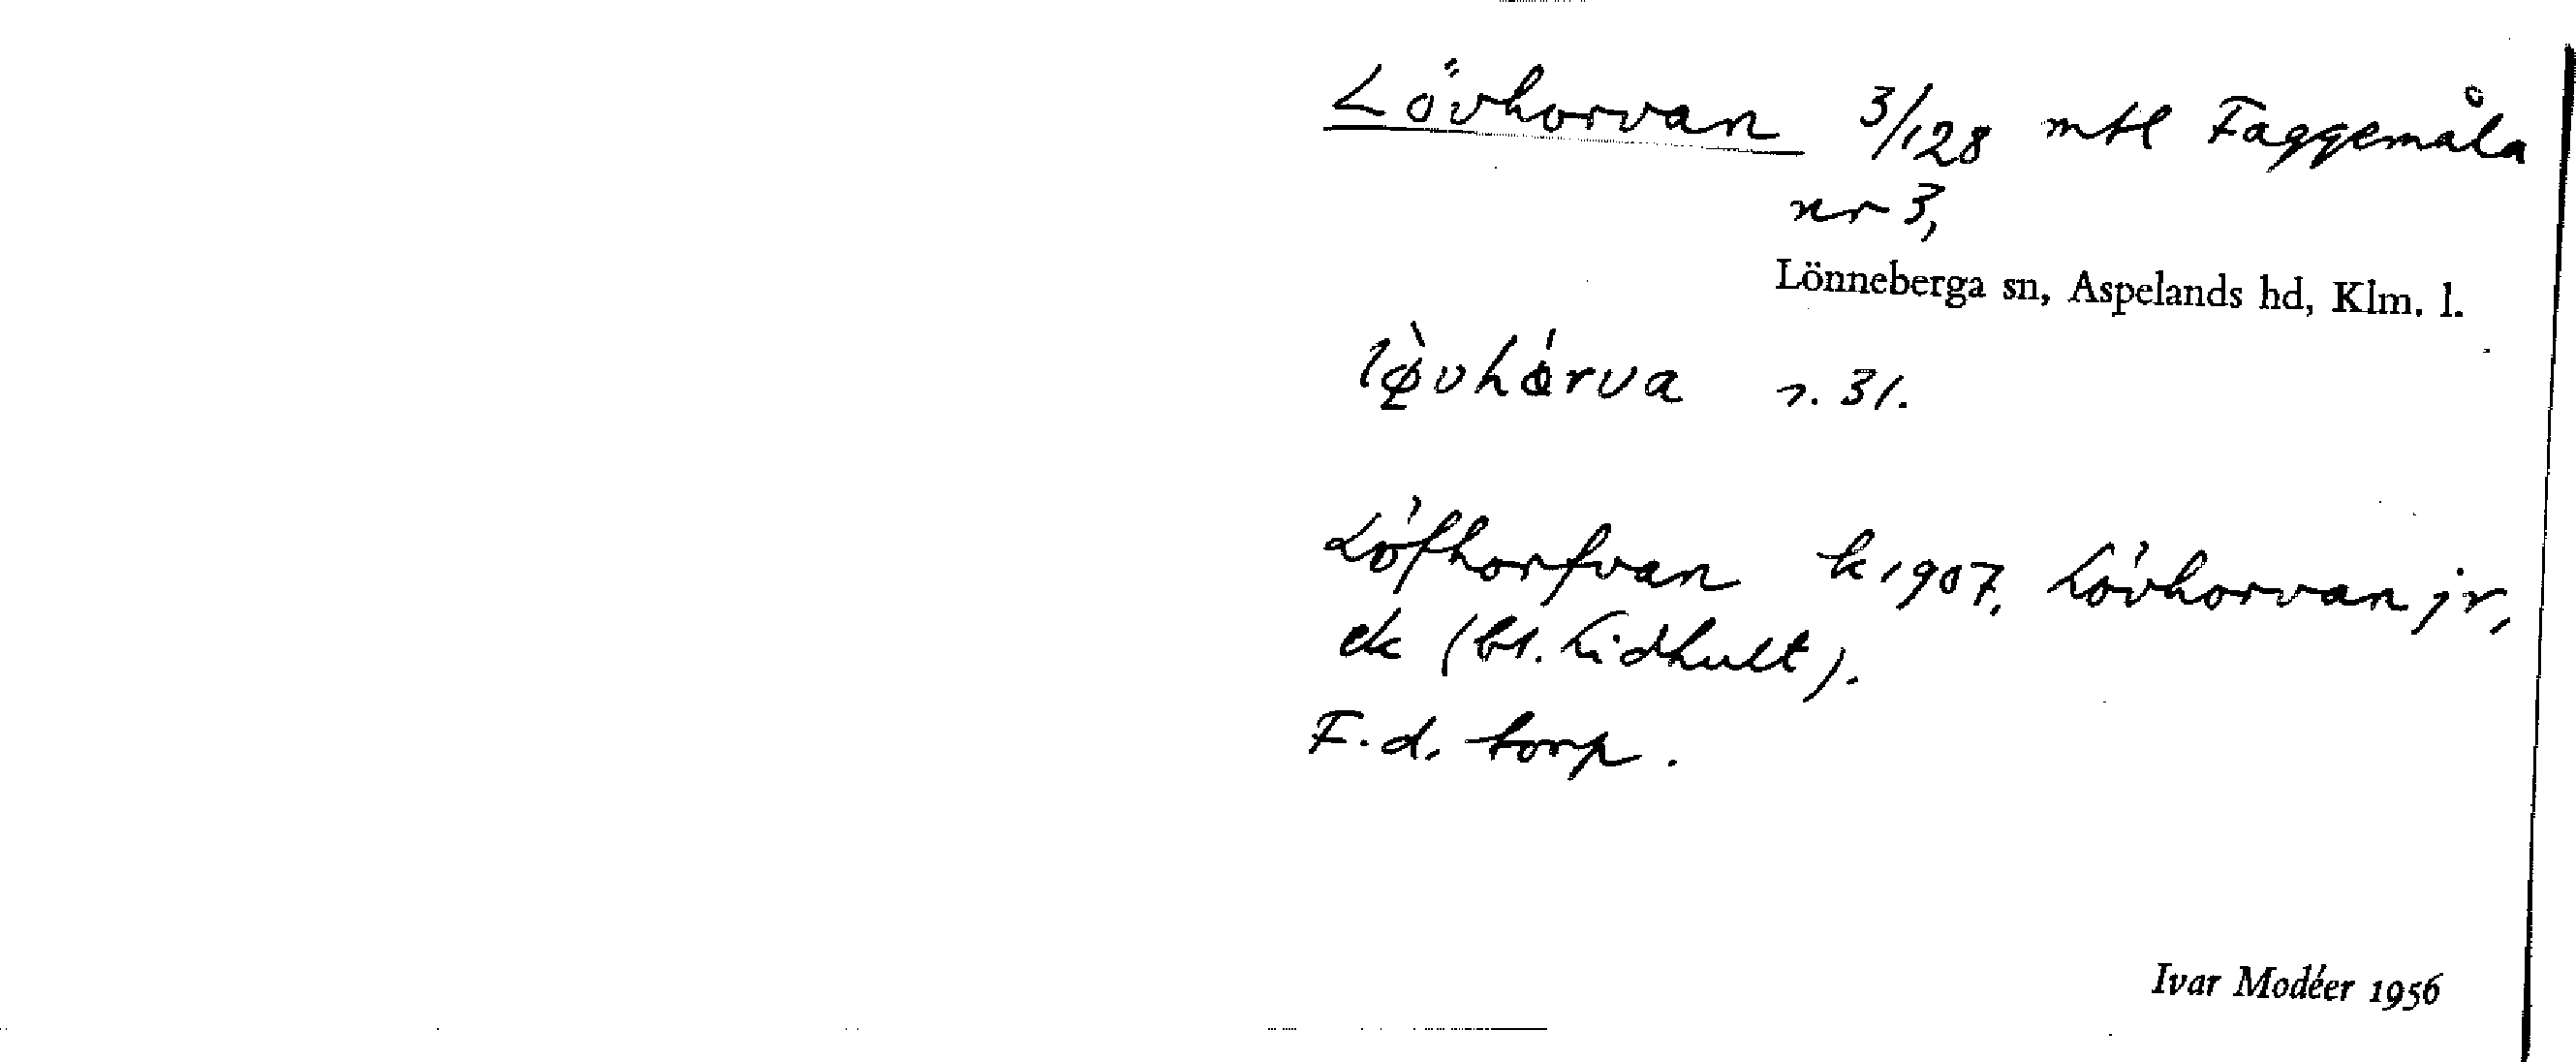 Lövhorvan 3/128 mtl Faggemåla
nr 3,
Lönneberga sn, Aspelands hd, Klm. l.
lø̀vhȧ́rva n. 31.
Löfhorfvan k 1907, Lövhorvan jr,
ek (bl. Lidhult).
F. d. torp.
Ivar Modéer 1956